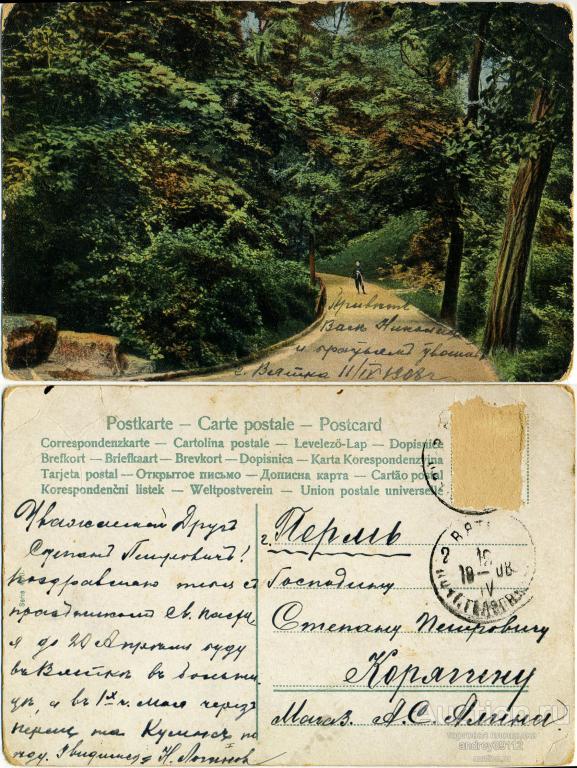 Привѣтъ
Вас. Никола
и
г. Вятка 11/IV 1908 г.
Postkarte — Carte postale — Postcard
Correspondenzkarte — Cartolina postale — Levelező-Lap — Dopisnice
Brefkort — Briefkaart — Brevkort — Dopisnica — Karta Korespondenzyina
Tarjeta postal — Открытое письмо — Дописна карта — Cartão postal
Korespondenční listek — Weltpostverein — Union postale universelle
Уважаемой Другъ
Степанъ Петровичъ!
поздравляю тебя съ
праздникомъ Св. Пасхи,
я до 20 Апрѣля буду
въ Вяткѣ въ
а въ 1х ч. мая черезъ
Н. Логиновъ
г. Пермь
Господину
Степану Петровичу
Корягину
Магаз. А. С. Алина.
ВЯТ
2
10
18 – 08
IV
Auction.ru
торговая площадка
andrey09112
auction.ru